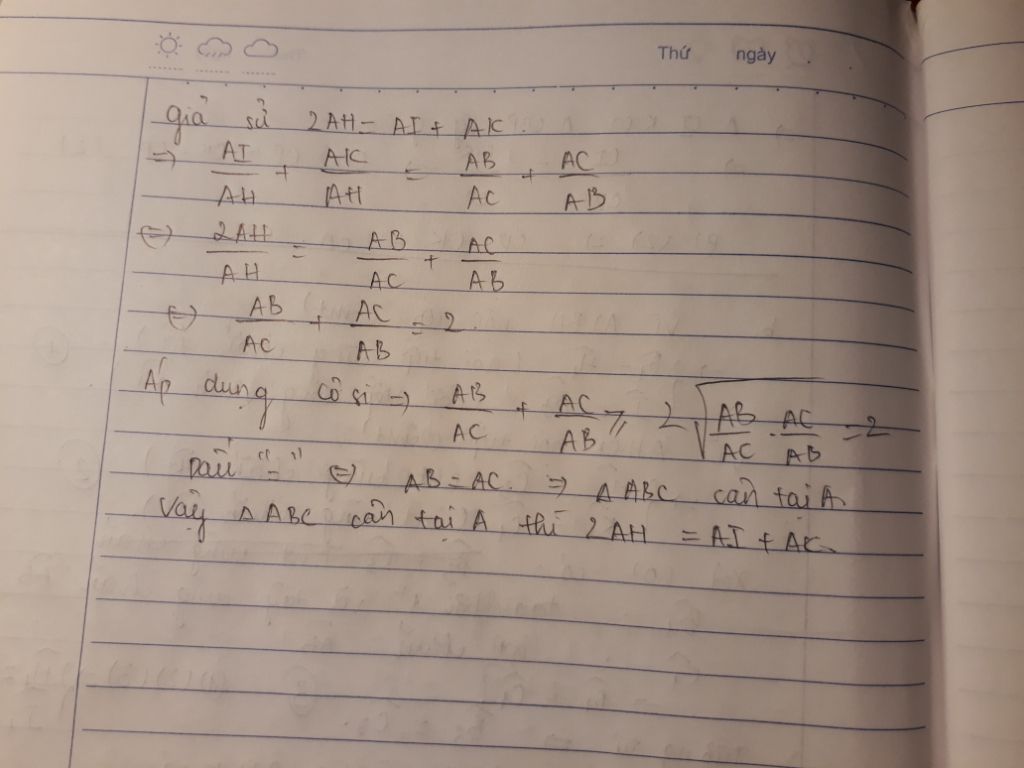 Thứ ngày
Giả sử 2AH = AI + AK.
=> AI/AH + AK/AH = AB/AC + AC/AB
<=> 2AH/AH = AB/AC + AC/AB
<=> AB/AC + AC/AB = 2.
Áp dụng cô si → AB/AC + AC/AB ≥ 2√(AB/AC . AC/AB) = 2
Dấu "=" <=> AB = AC. => △ABC cân tại A.
Vậy △ABC cân tại A thì 2AH = AI + AK.